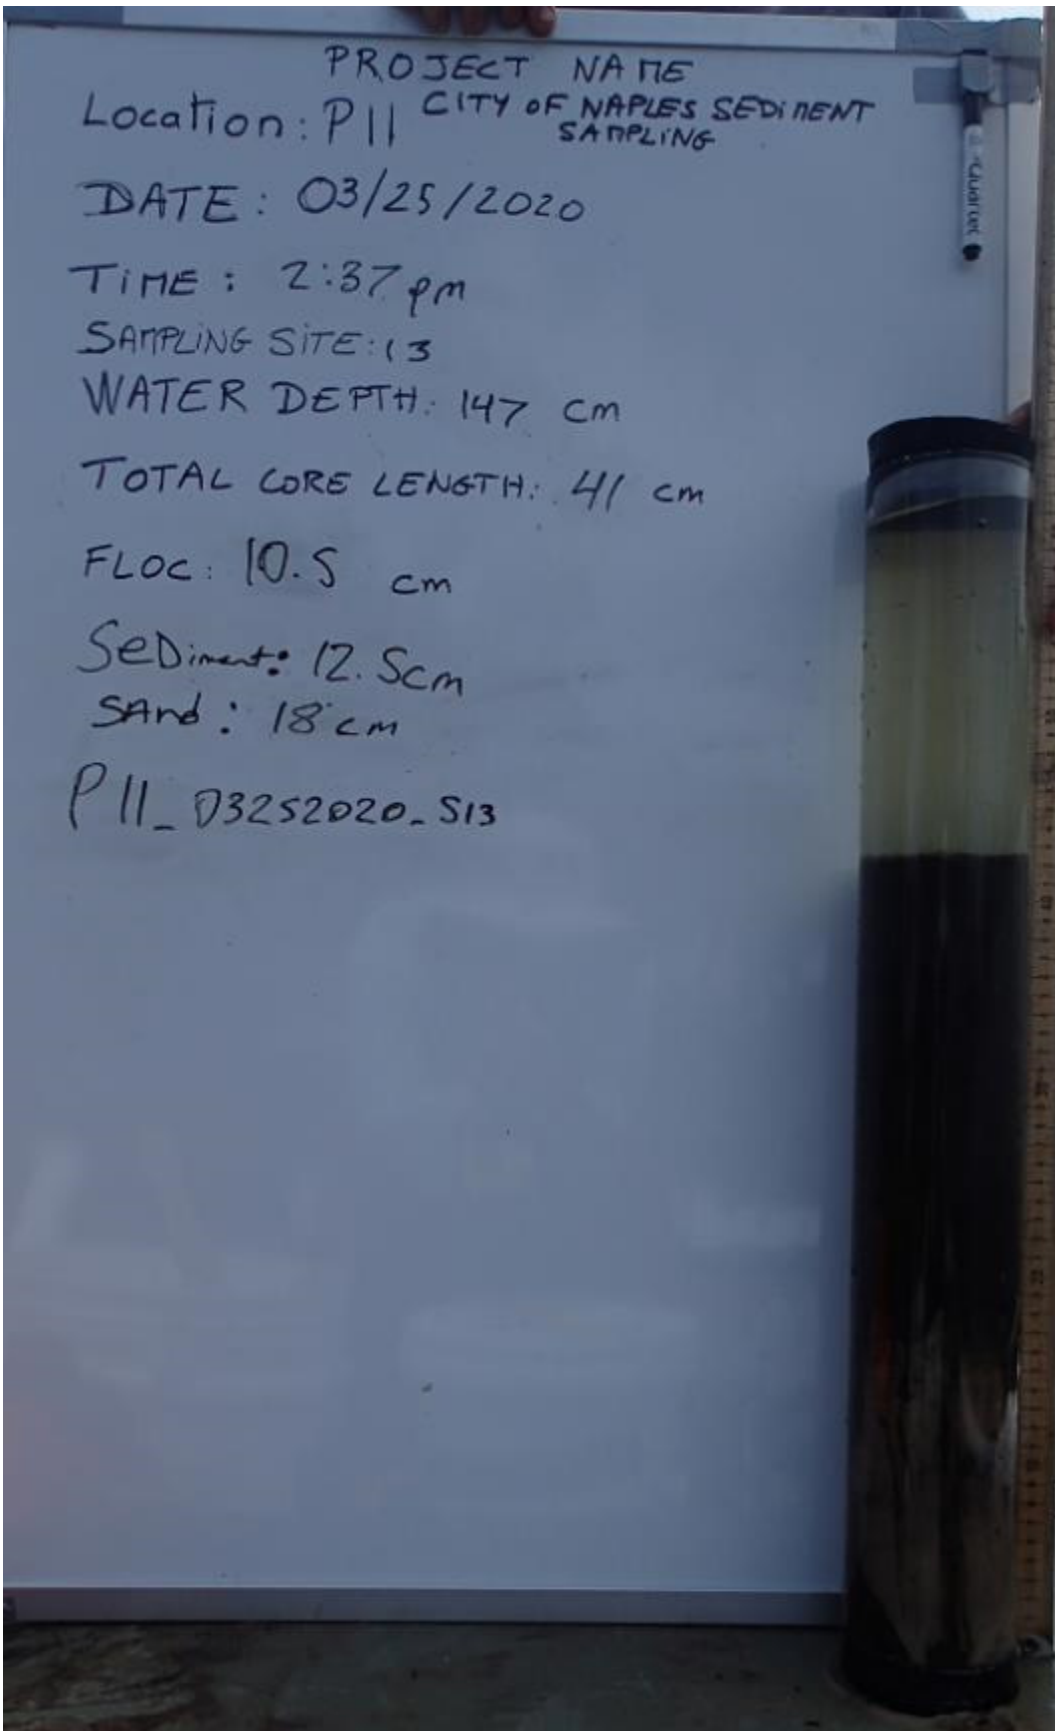 PROJECT NAME
Location: P11 CITY OF NAPLES SEDIMENT
SAMPLING
DATE: 03/25/2020
TiME: 2:37 pm
SAMPLiNG SiTE: 13
WATER DEPTH: 147 cm
TOTAL CORE LENGTH: 41 cm
FLOC: 10.5 cm
SeDiment: 12.5cm
SAnd: 18 cm
P11_03252020_S13
Quartet